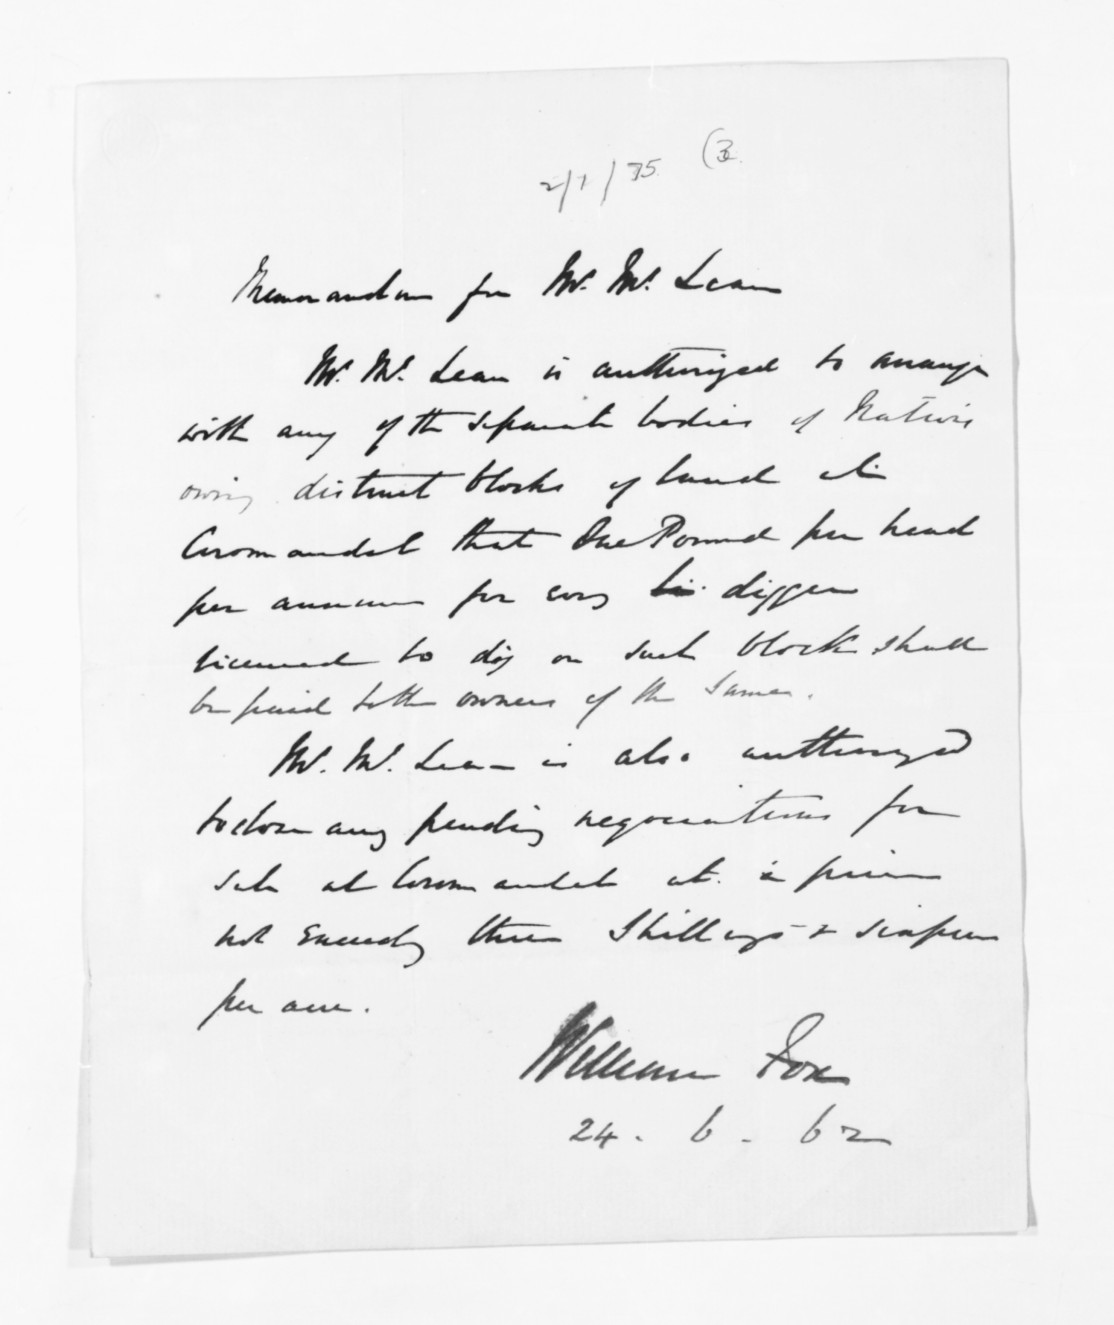 2/1/75 (3.
Memorandum for Mr. McLean
Mr. McLean is authorized to arrange
with any of the separate bodies of Natives
owning distinct blocks of land at
Coromandel that One Pound per head
per annum for every digger
licensed to dig on such block shall
be paid to the owners of the same.
Mr. McLean is also authorized
to close any pending negociations for
sale at Coromandel at a price
not exceeding three Shillings & sixpence
per acre.
William Fox
24. 6. 62